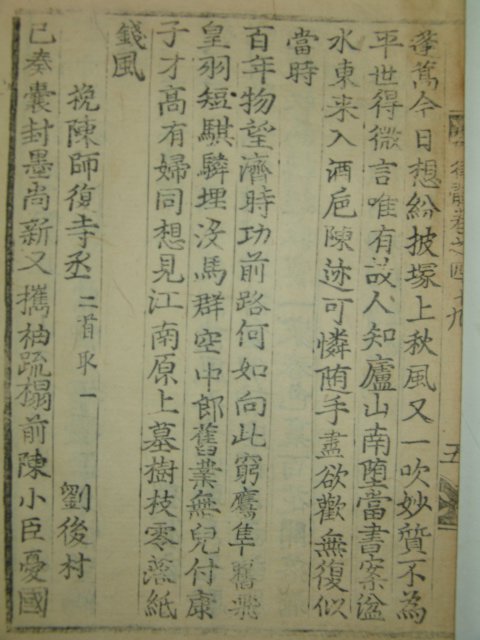 律髓卷之四十九 五
蓬蒿今日想紛披塚上秋風又一吹妙質不為
平世得微言唯有故人知廬山南墮當書案湓
水東来入酒巵陳迹可憐随手盡欲歡無復似
當時
百年物望濟時功前路何如向此窮鷹隼奮飛
皇羽短騏驎埋没馬群空中郎舊業無兒付康
子才高有婦同想見江南原上墓樹枝零落紙
錢風
挽陳師復寺丞 二首取一 劉後村
已奏囊封墨尚新又攜袖疏榻前陳小臣憂國